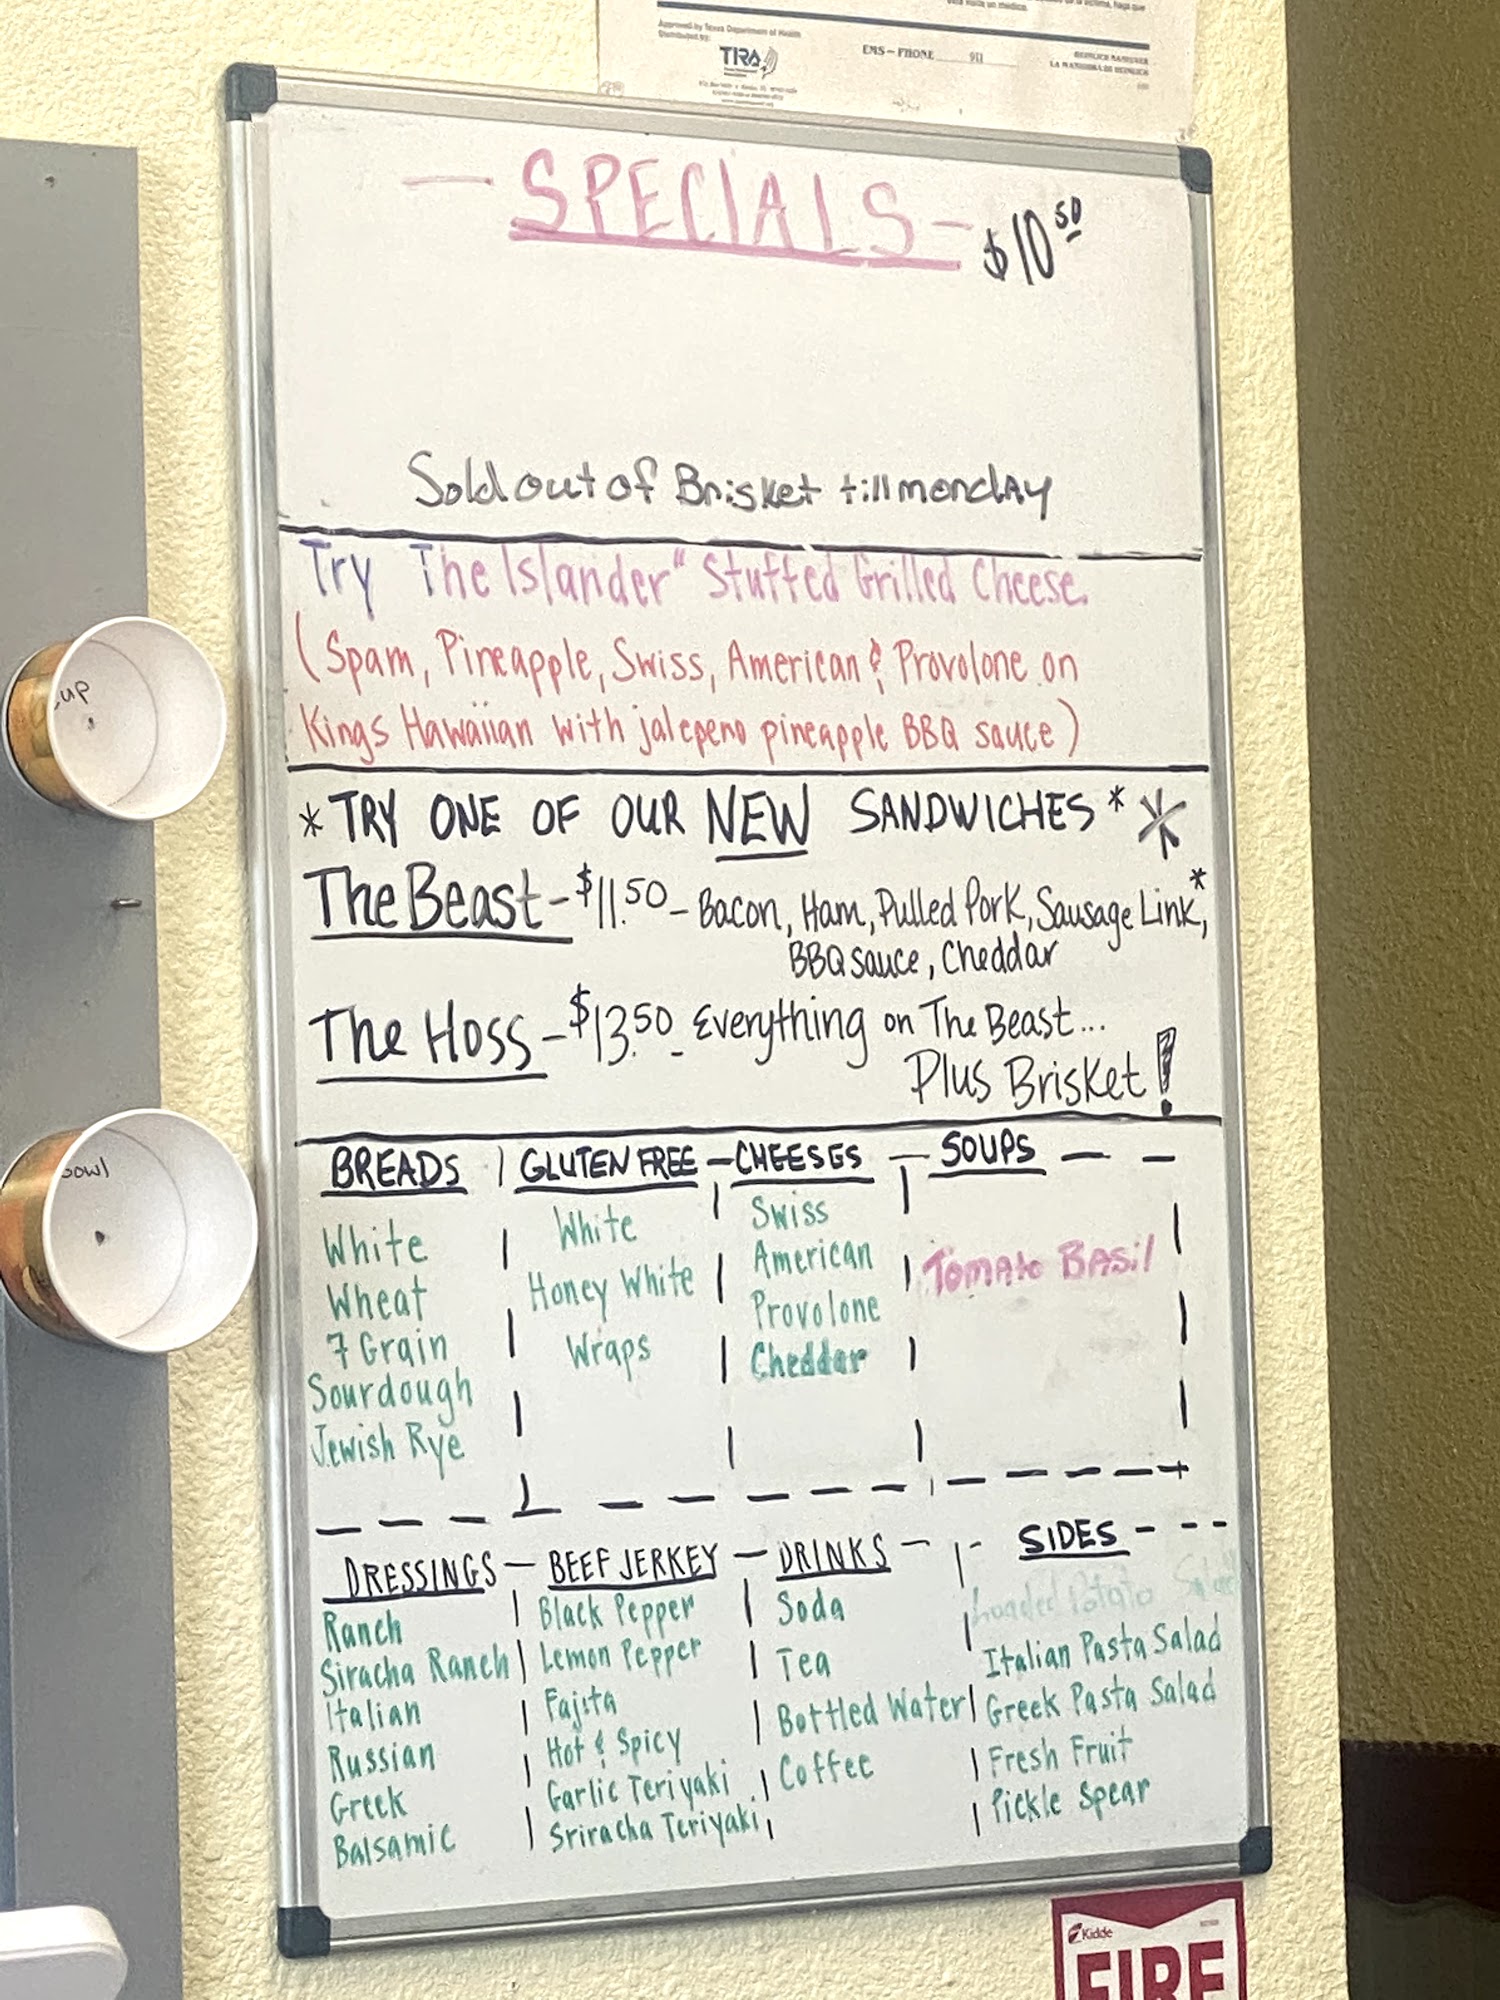 Approved by Texas Department of Health
Distributed by:
TIRA
EMS - PHONE 911
LA MANIOBRA DE HEIMLICH
— SPECIALS — $10 50
Sold out of Brisket till monday
Try The Islander" Stuffed Grilled Cheese.
(Spam, Pineapple, Swiss, American & Provolone on
Kings Hawaiian with jalepeno pineapple BBQ sauce)
* TRY ONE OF OUR NEW SANDWICHES * *
The Beast - $11.50 - Bacon, Ham, Pulled Pork, Sausage Link,*
BBQ sauce, Cheddar
The Hoss - $13.50 - Everything on The Beast...
Plus Brisket!
BREADS
White
Wheat
7 Grain
Sourdough
Jewish Rye
GLUTEN FREE
White
Honey White
Wraps
CHEESES
Swiss
American
Provolone
Cheddar
SOUPS
Tomato Basil
DRESSINGS
Ranch
Siracha Ranch
Italian
Russian
Greek
Balsamic
BEEF JERKEY
Black Pepper
Lemon Pepper
Fajita
Hot & Spicy
Garlic Teriyaki
Sriracha Teriyaki
DRINKS
Soda
Tea
Bottled Water
Coffee
SIDES
Loaded Potato Salad
Italian Pasta Salad
Greek Pasta Salad
Fresh Fruit
Pickle Spear
cup
bowl
Kidde
FIRE